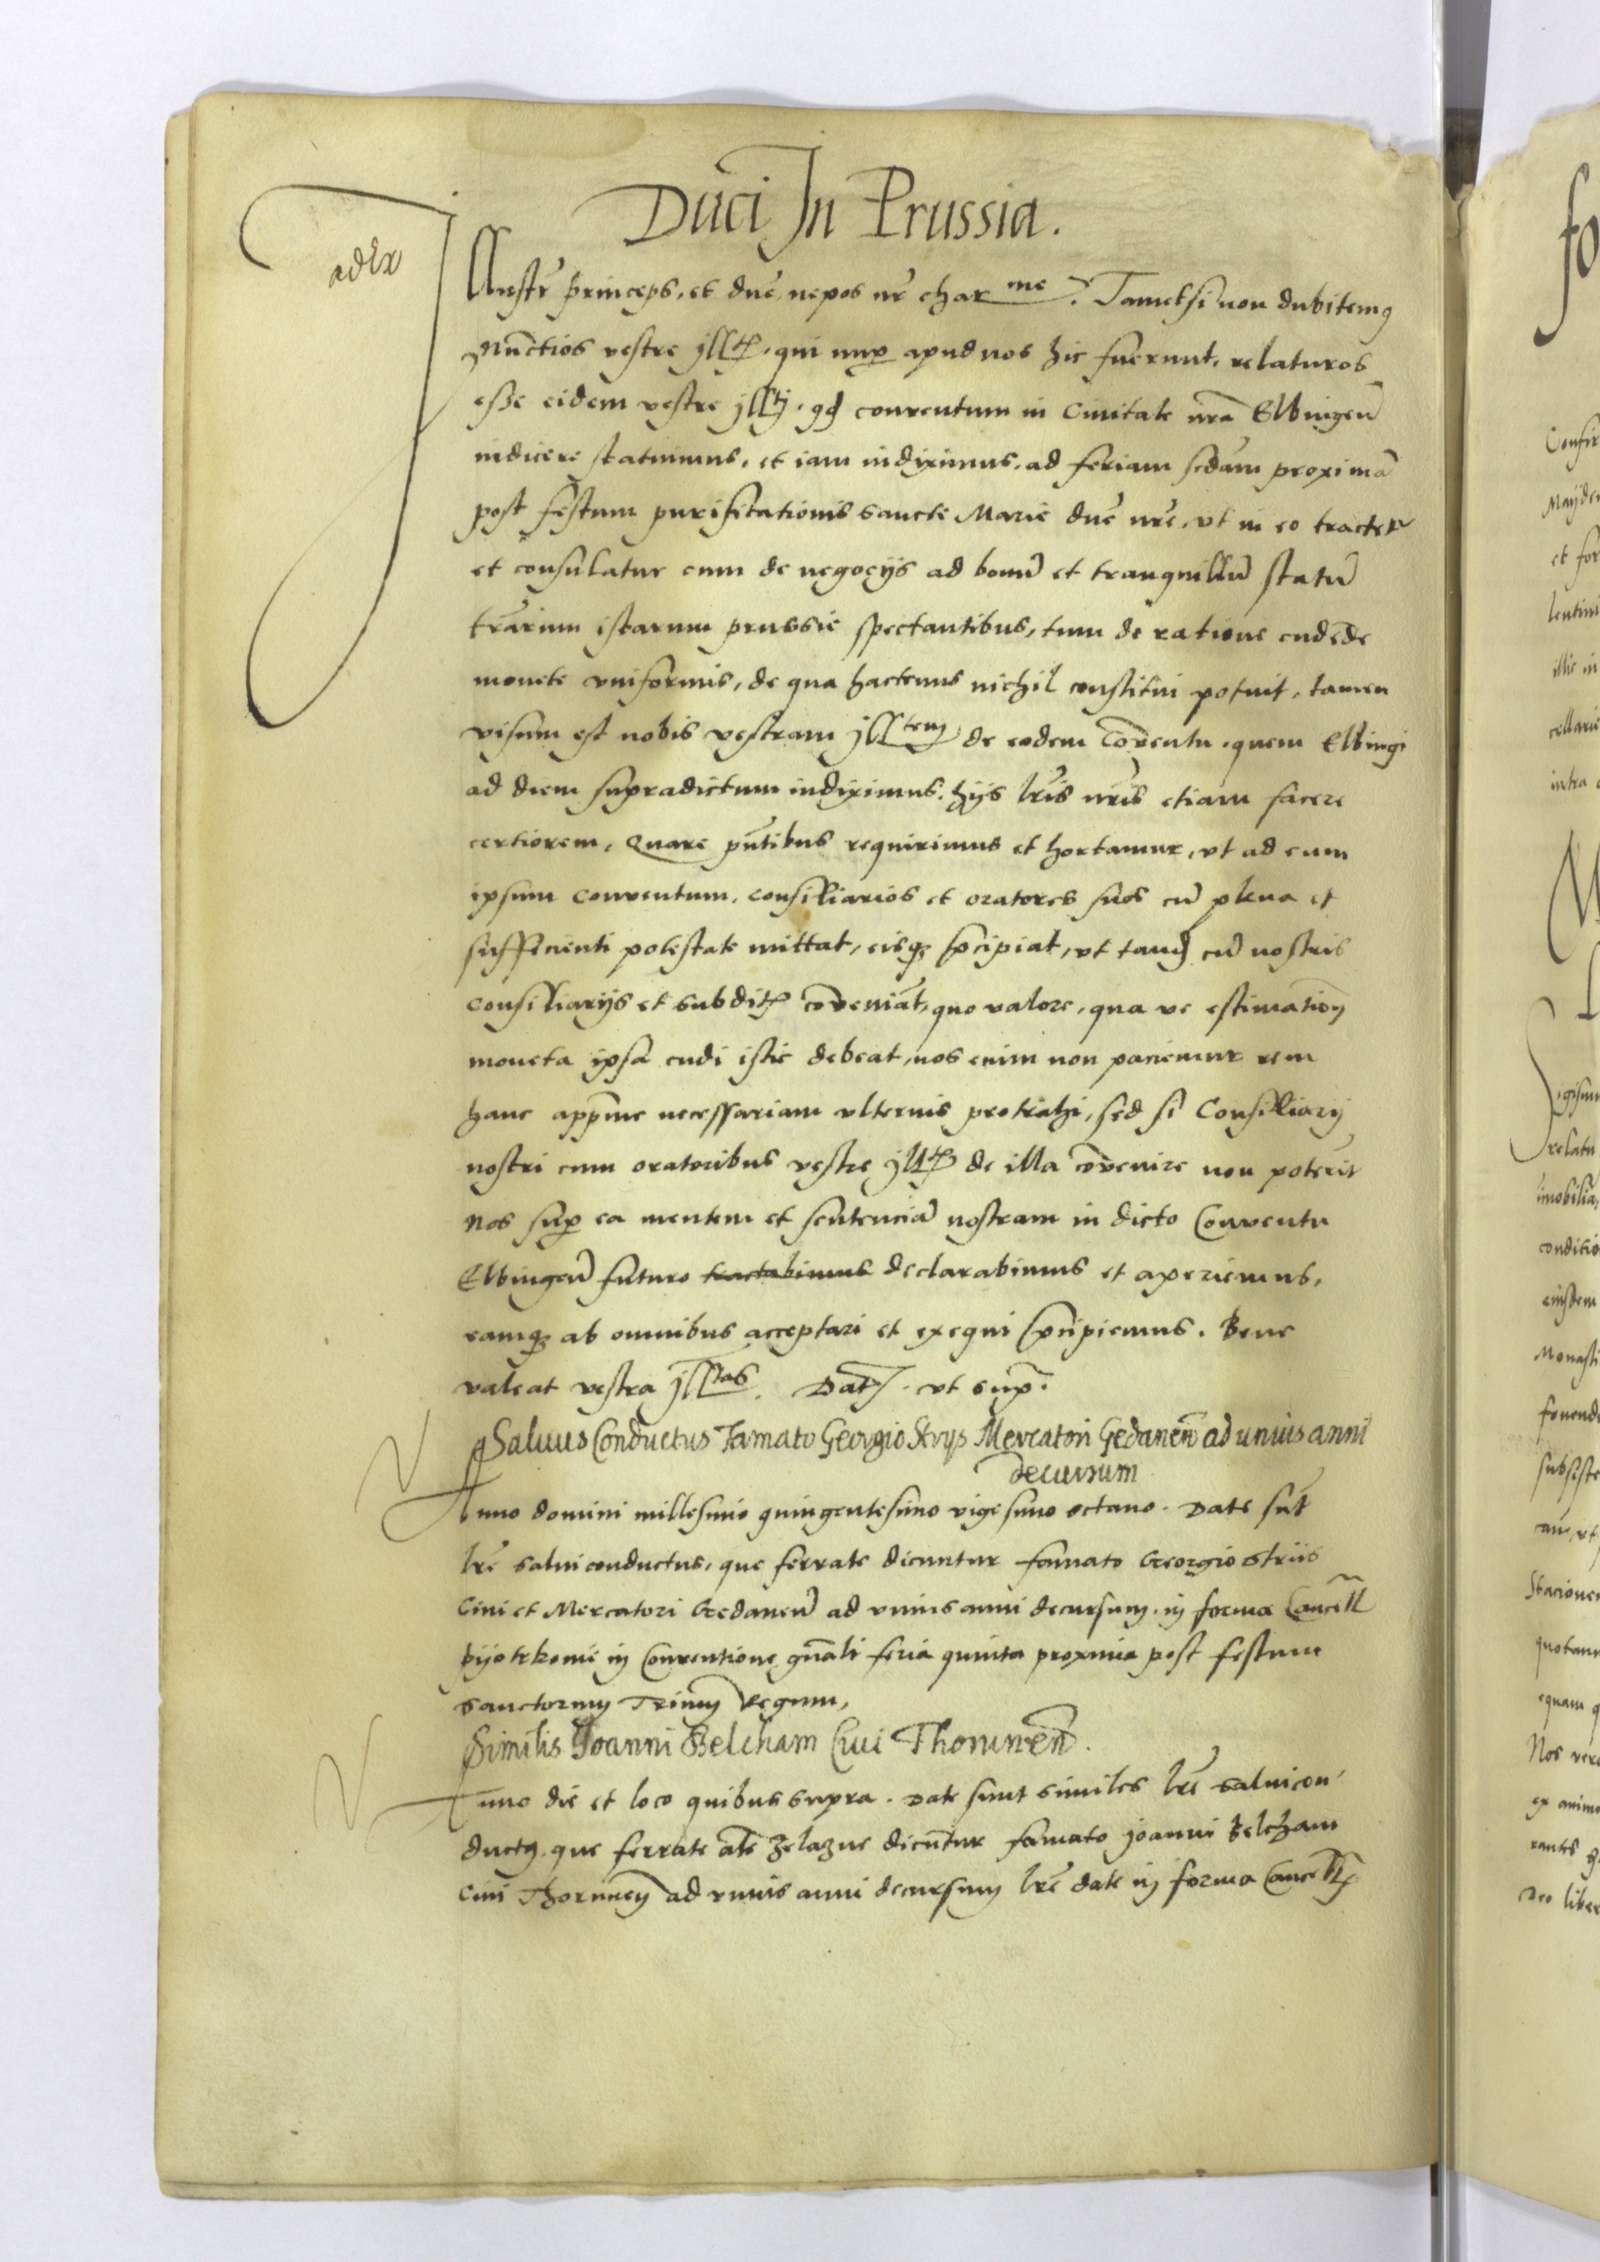 Duci In Prussia.
ad Ex
Illustr̃ princeps, et dñe, nepos nr̃e char me. Tametsi non dubitemꝯ
Nũctios vestre jll, qui nup apud nos hic fuerunt, relaturos
esse eidem vestre jllti, qd conventum in Civitate nr̃a Elbingen̄
indicere statuimus, et iam indiximus, ad feriam sc̃dam proximā
post festum purificationis sancte Marie dñe nr̃e, vt in eo tractet
et consulatur cum de negocijs ad bonū et tranquillū statū
tr̃arum istarum prussie spectantibus, tum de ratione cudẽde
monete vniformis, de qua hactenus nichil constitui potuit, tamen
visum est nobis vestram jlltem de eodem Cõventu, quem Elbingi
ad diem supradictum indiximus, hijs lr̃is nr̃is etiam facere
certiorem, Quare pñtibus requirimus et hortamur, vt ad eum
ipsum conventum, consiliarios et oratores suos cū plena et
sufficienti potestate mittat, eisq precipiat, vt tand cū nostris
consiliarijs et subdit cõveniãt, quo valore, qua ve estimation
moneta ipsa cudi istic debeat, nos enim non paciemur rem
hanc app̃me necessariam vlterius protrahi, sed si Consiliarij
nostri cum oratoribus vestre jll de illa cõvenire non poterūt
Nos sup ea mentem et sentenciā nostram in dicto Conventu
Elbingen̄ futuro tractabimus declarabimus et aperiemus,
eamq ab omnibus acceptari et exequi precipiemus. Bene
valeat vestra jlltas. Dat. vt supͣ.
Salvus Conductus Famato Georgio Strijs Mercatori Gedanen̄ ad unius anni
decursum
Anno domini millesimo quingentesimo vigesimo octavo. Date sūt
lr̃e salviconductus, que ferrate dicuntur famato Georgio Striis
Civi et Mercatori Gedanen̄ ad vnius anni decursum, in forma Cancell
pijotrkovie in Conventione gñali feria quinta proxima post festum
sanctorum Trium Regum,
Similis Joanni Belcham Civi Thorunen̄.
Anno die et loco quibus supra. Date sunt similes lr̃e salvicon
ductꝯ, que ferrate al̃s zelazne dicūtur famato joanni Belcham
Civi Thorunen ad vnius anni decursum lr̃e date in forma Cancell